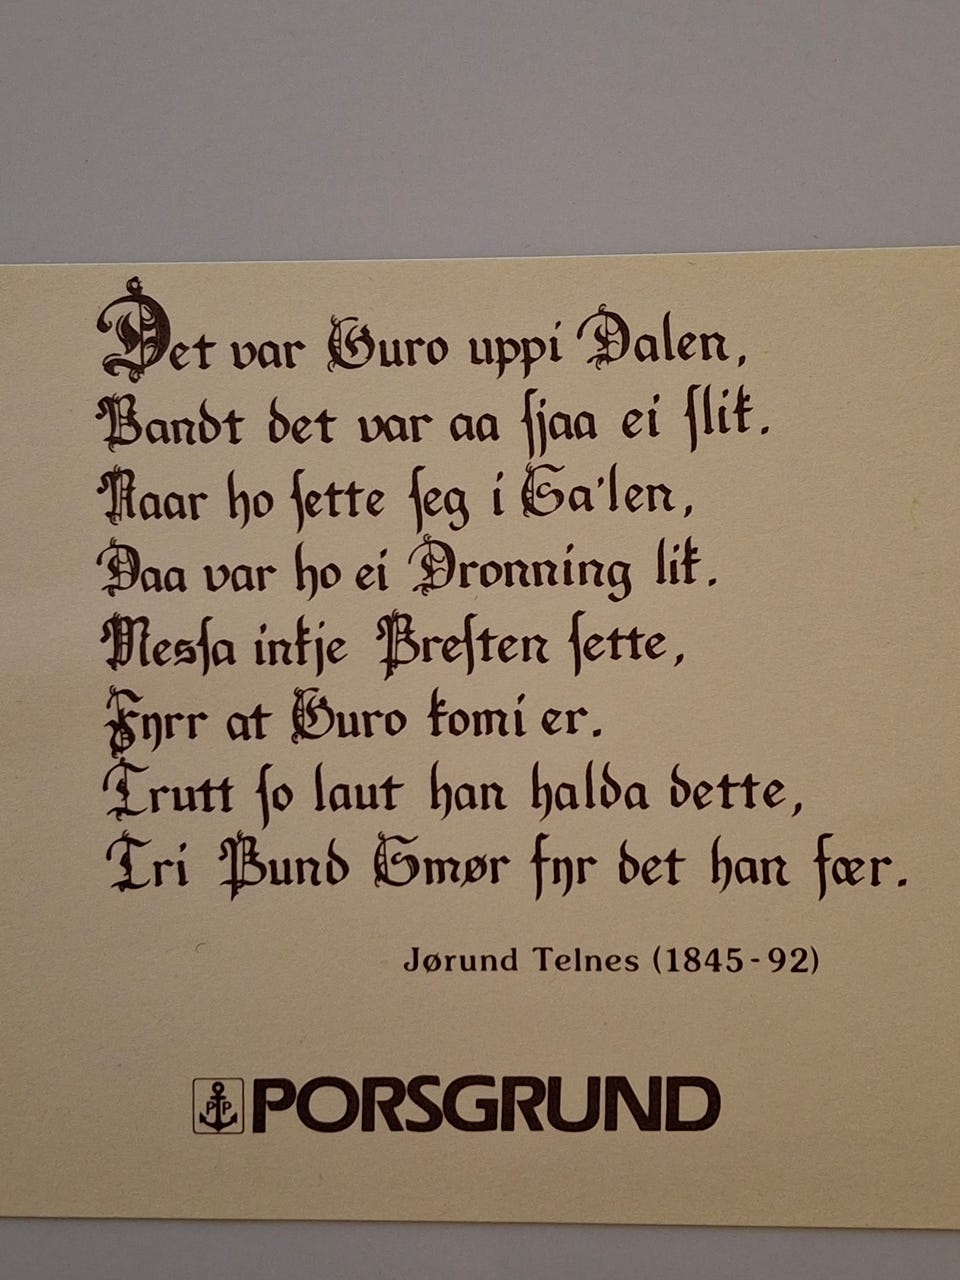 Det var Guro uppi Dalen,
Vandt det var aa sjaa ei slik.
Naar ho sette seg i Sa'len,
Daa var ho ei Dronning lik.
Messa inkje Presten sette,
Fyrr at Guro komi er.
Trutt so laut han halda dette,
Tri Pund Smør fyr det han fær.
Jørund Telnes (1845-92)
PP PORSGRUND